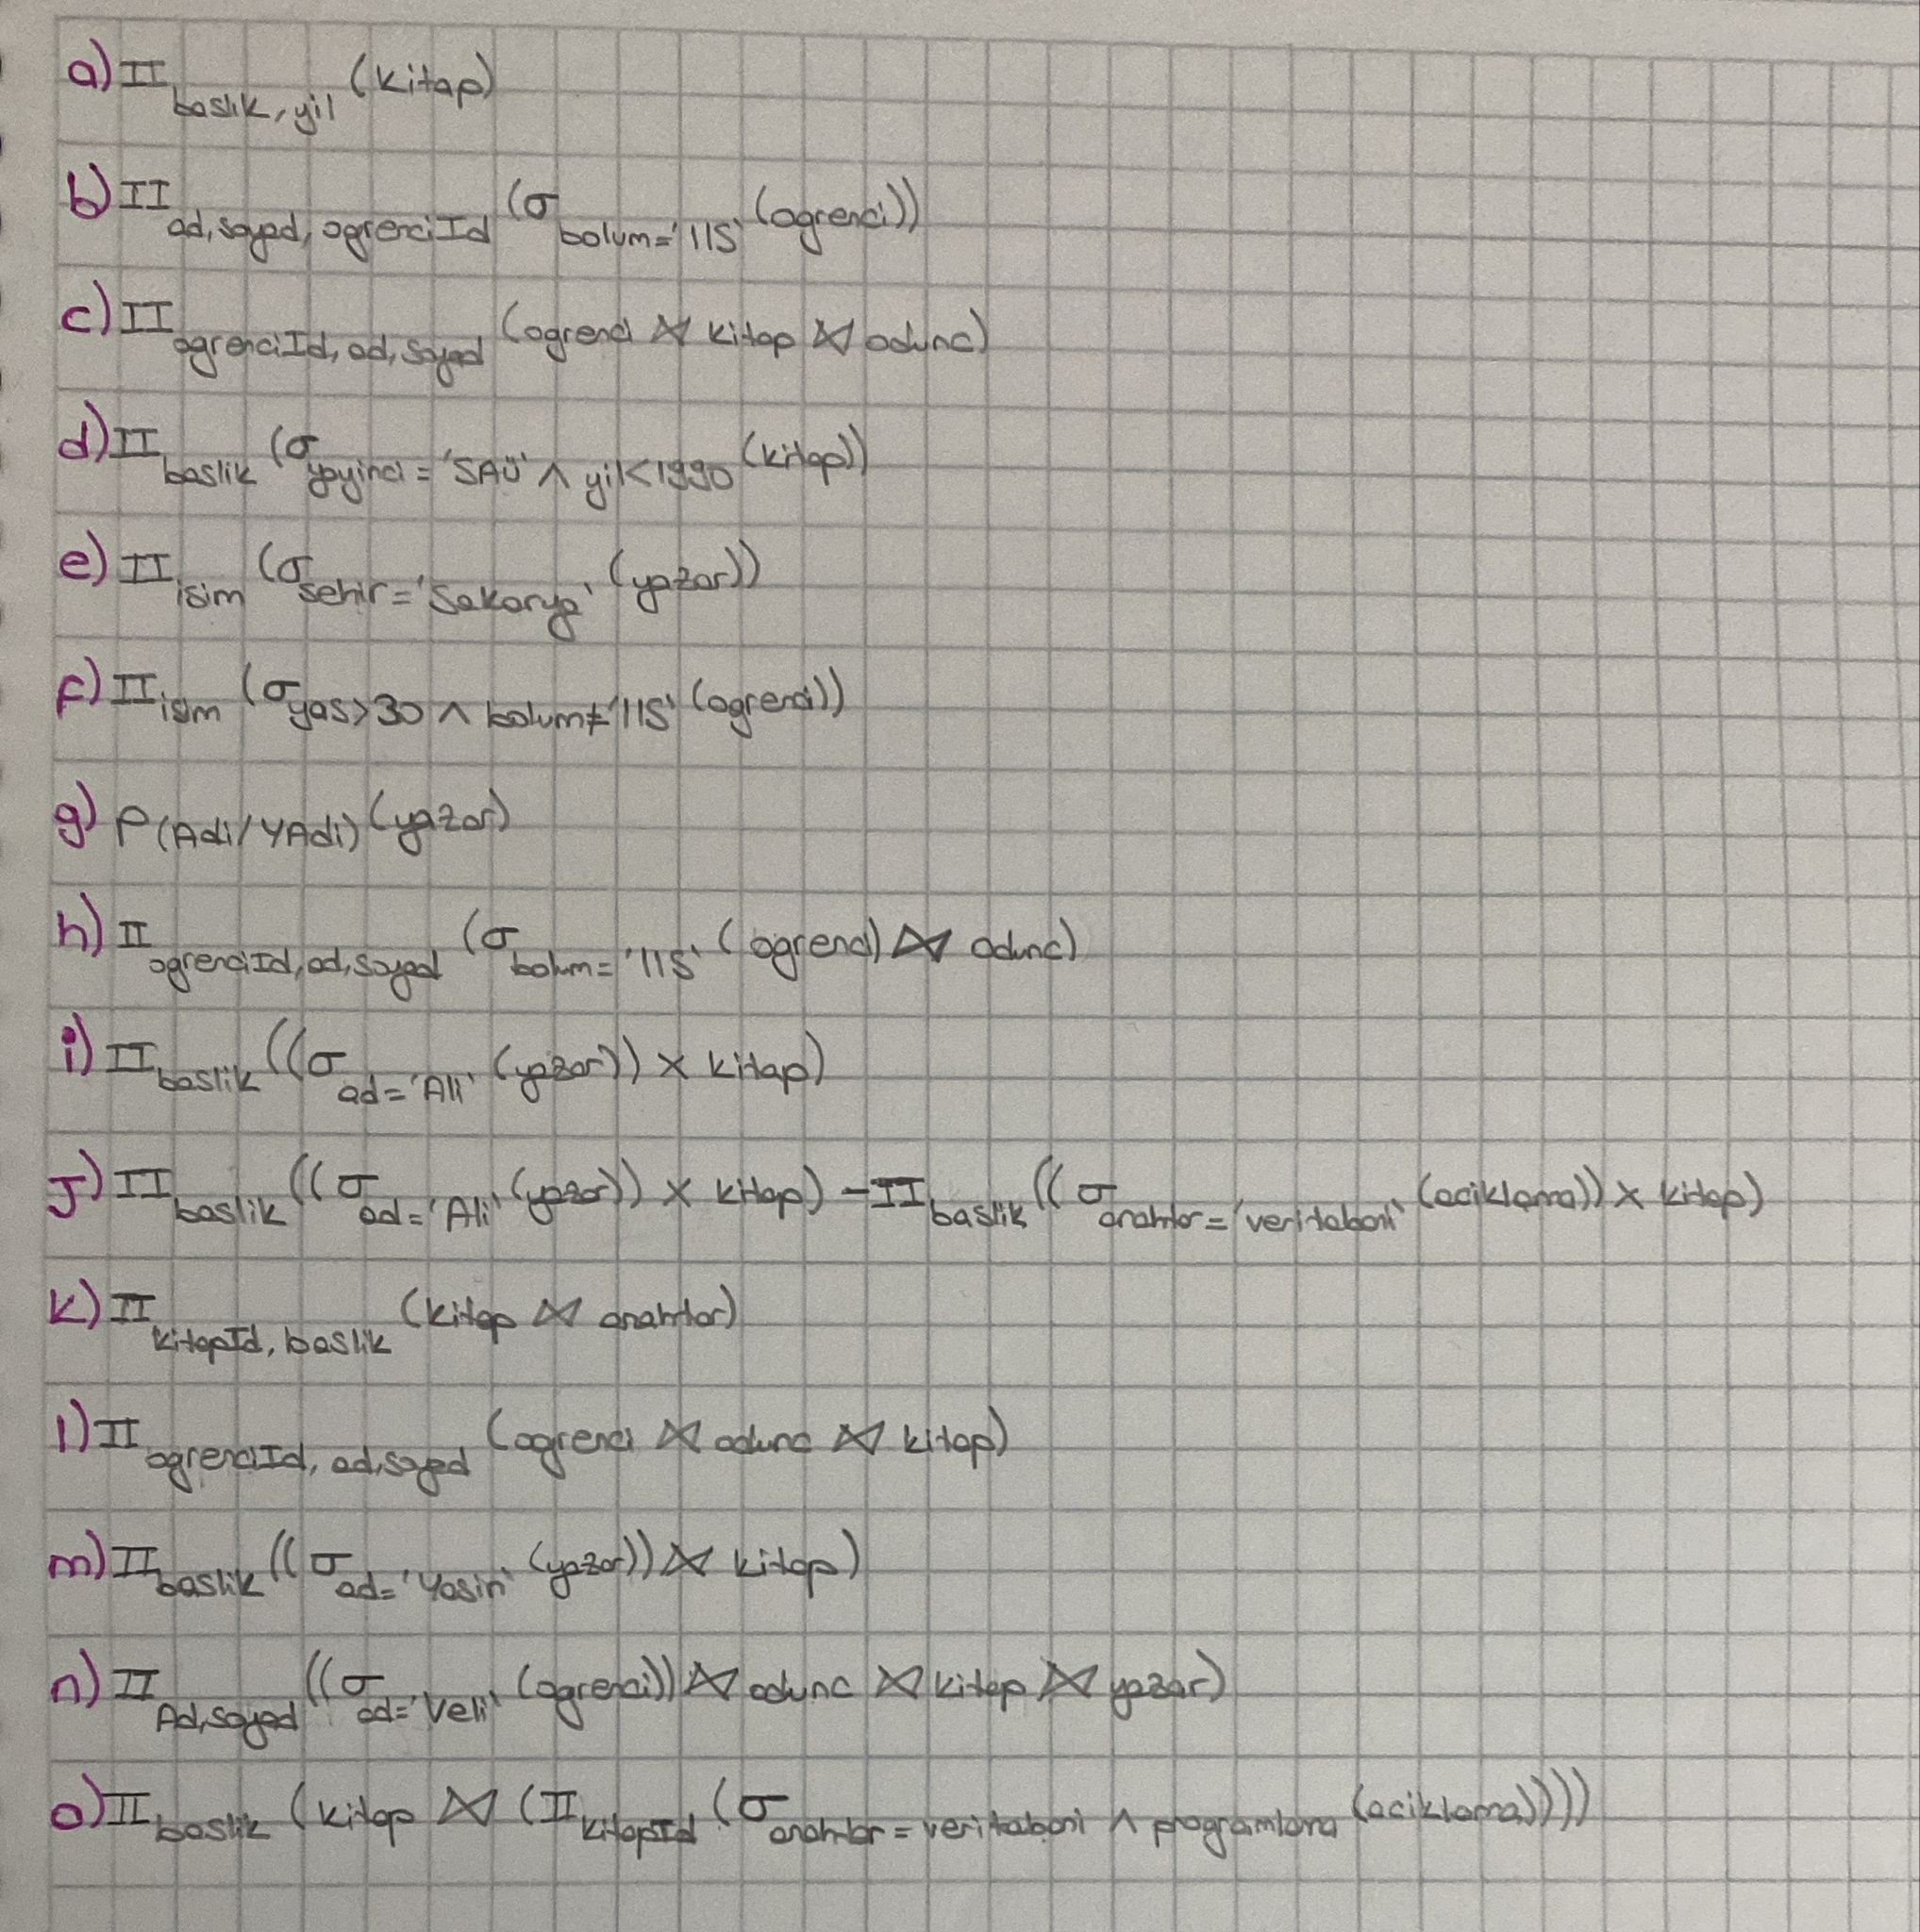 a) II baslik, yil (kitap)
b) II ad, soyad, ogrenciId (σ bolum='IIS' (ogrenci))
c) II ogrenciId, ad, soyad (ogrenci ⋈ kitap ⋈ odunc)
d) II baslik (σ yayinci = 'SAÜ' ∧ yil<1990 (kitap))
e) II isim (σ sehir='Sakarya' (yazar))
f) II isim (σ yas>30 ∧ bolum≠'IIS' (ogrenci))
g) ρ (Adi/YAdi) (yazar)
h) II ogrenciId, ad, soyad (σ bolum='IIS' (ogrenci) ⋈ odunc)
i) II baslik ((σ ad='Ali' (yazar)) X kitap)
J) II baslik ((σ ad='Ali' (yazar)) X kitap) - II baslik ((σ anahtar='veritabani' (aciklama)) X kitap)
k) II kitapId, baslik (kitap ⋈ anahtar)
l) II ogrenciId, ad, soyad (ogrenci ⋈ odunc ⋈ kitap)
m) II baslik ((σ ad='Yasin' (yazar)) ⋈ kitap)
n) II Ad, soyad ((σ ad='Veli' (ogrenci)) ⋈ odunc ⋈ kitap ⋈ yazar)
o) II baslik (kitap ⋈ (II kitapId (σ anahtar = veritabani ∧ programlama (aciklama))))